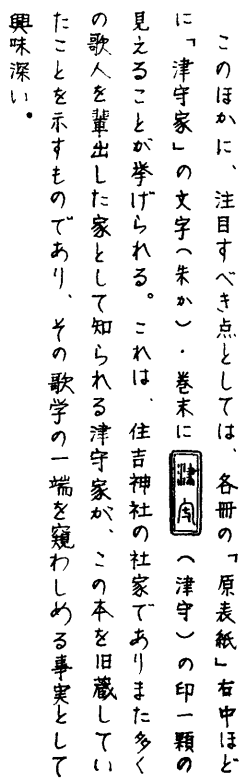 このほかに、注目すべき点としては、各冊の「原表紙」右中ほど
に「津守家」の文字(朱か)・巻末に津守(津守)の印一顆の
見えることが挙げられる。これは、住吉神社の社家でありまた多く
の歌人を輩出した家として知られる津守家が、この本を旧蔵してい
たことを示すものであり、その歌学の一端を窺わしめる事実として
興味深い。